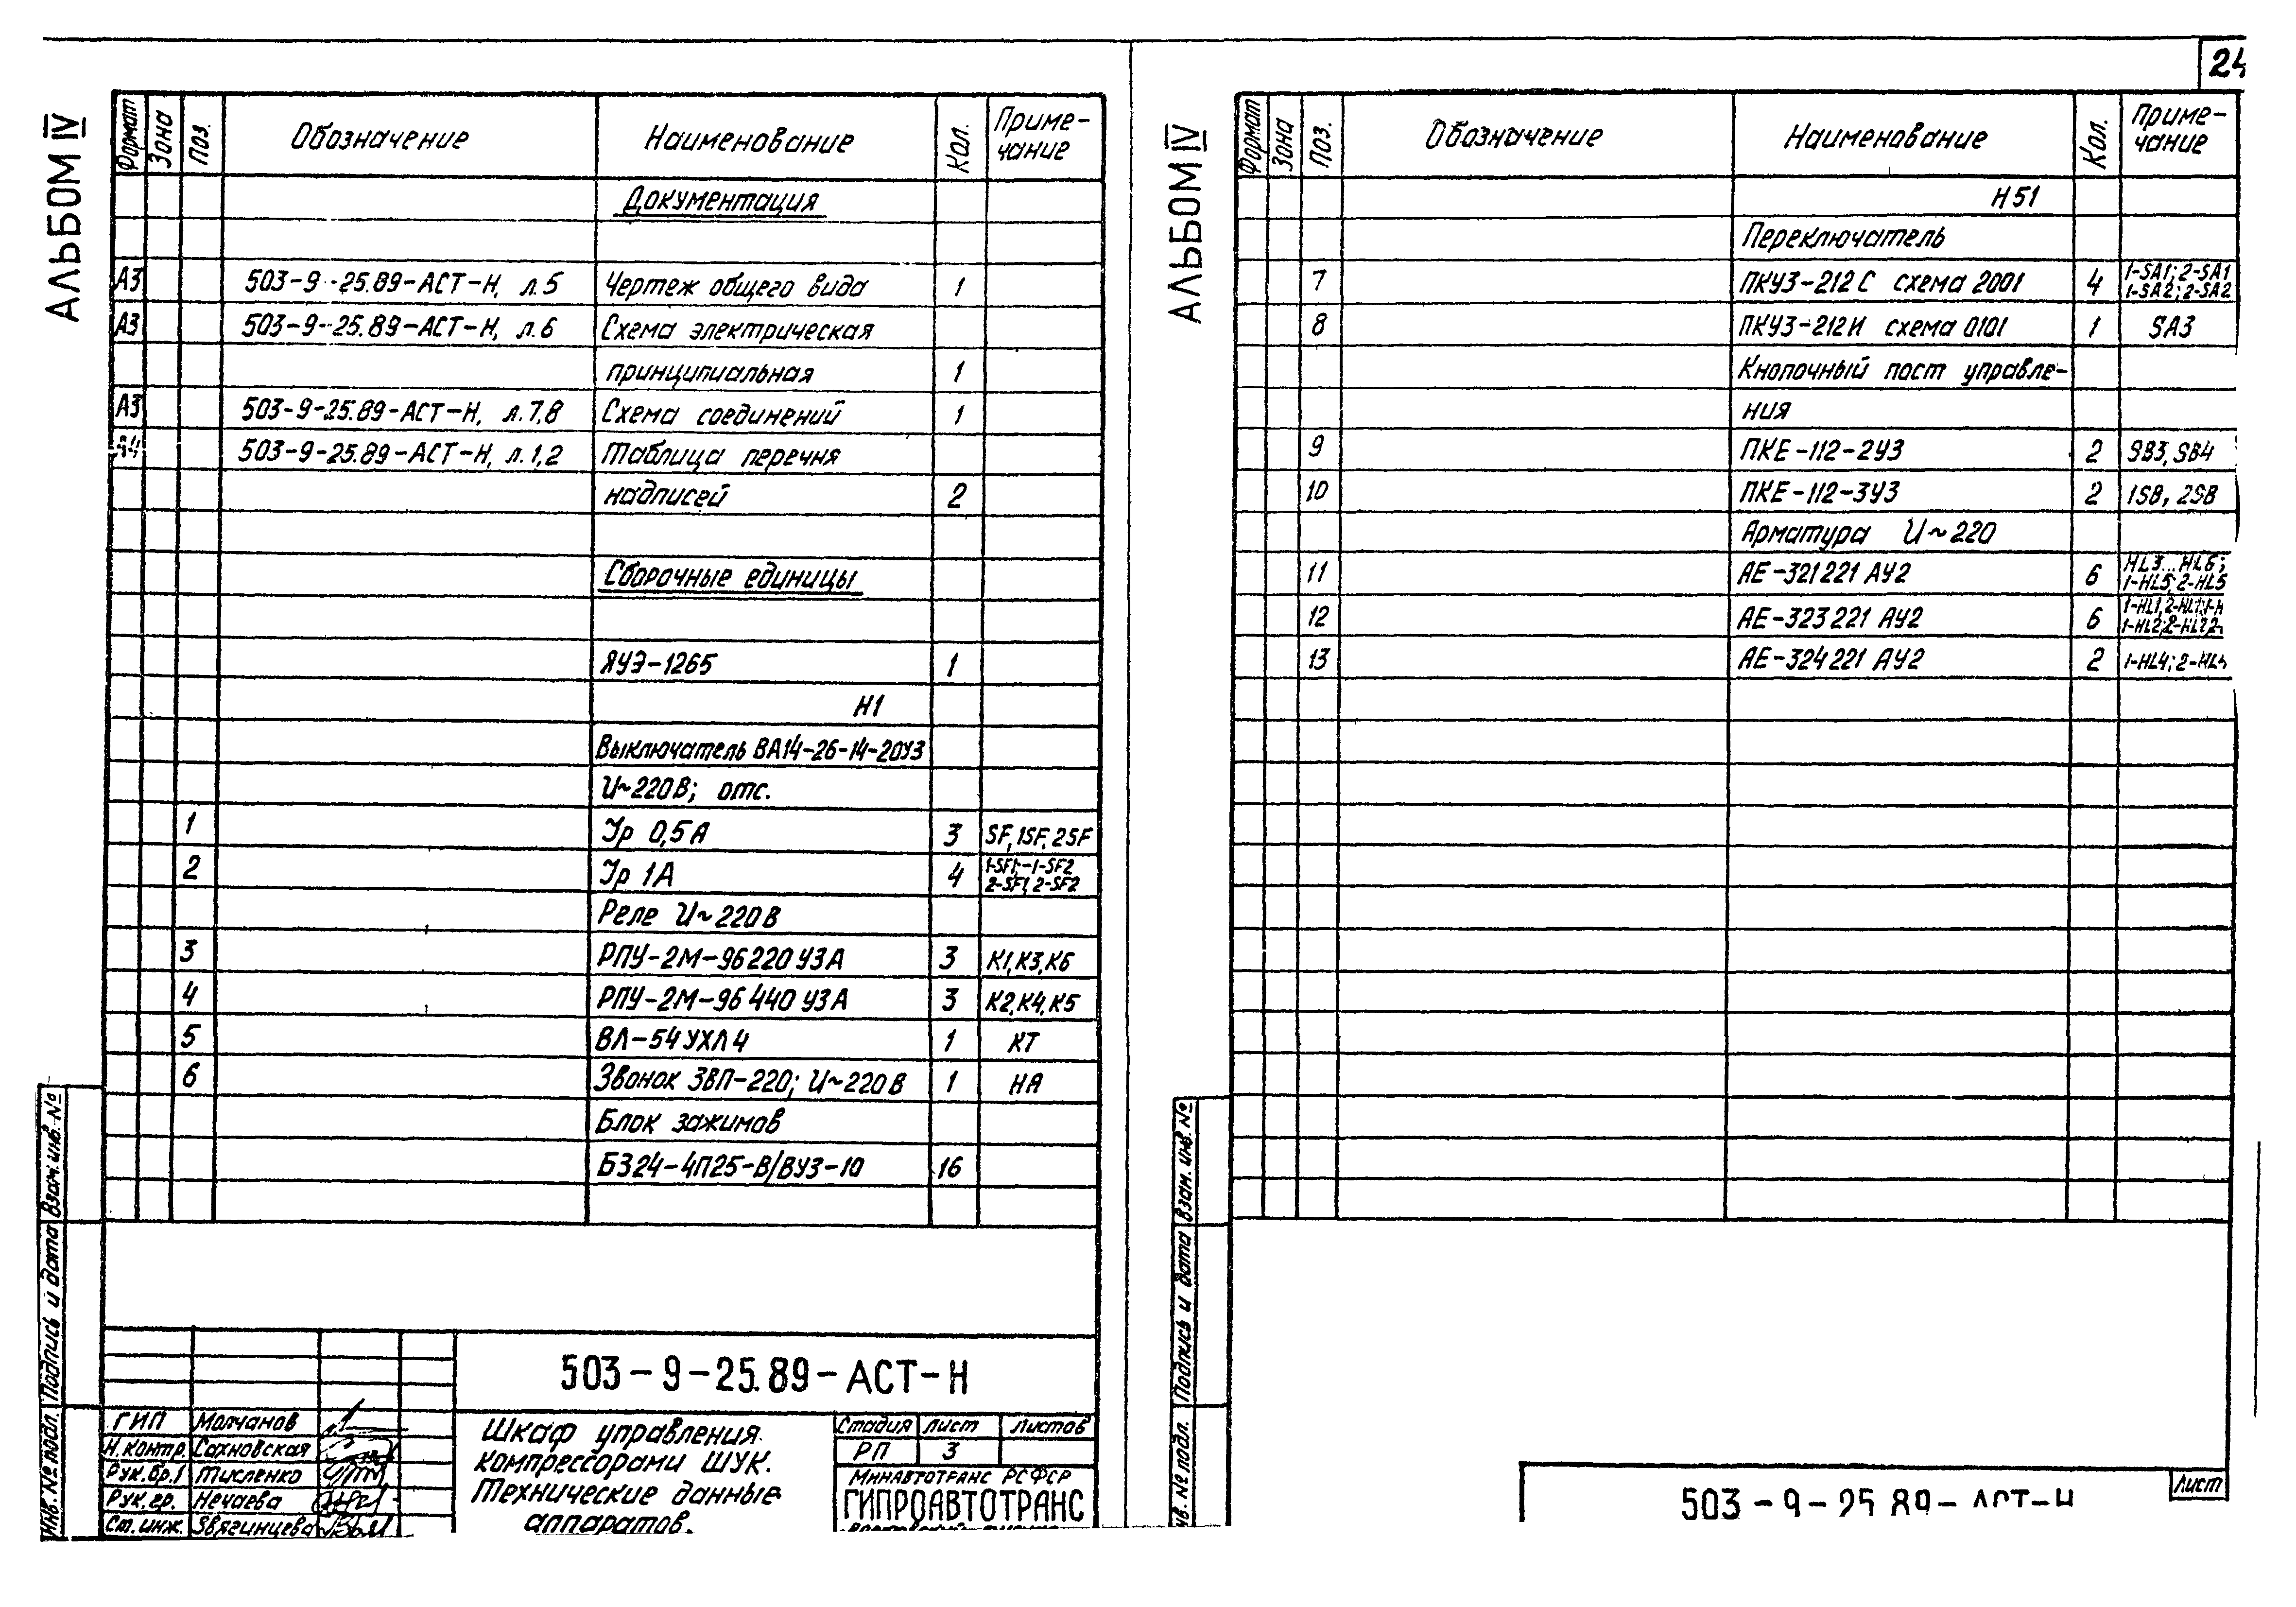 24
АЛЬБОМ IV
Формат Зона Поз. Обозначение Наименование Кол. Приме-чание
Документация
А3 503-9-25.89-АСТ-Н, л.5 Чертеж общего вида 1
А3 503-9-25.89-АСТ-Н, л.6 Схема электрическая
принципиальная 1
А3 503-9-25.89-АСТ-Н, л.7,8 Схема соединений 1
А4 503-9-25.89-АСТ-Н, л.1,2 Таблица перечня
надписей 2
Сборочные единицы
ЯУЭ-1265 1
Н1
Выключатель ВА14-26-14-20У3
U~220В; отс.
1 Iр 0,5А 3 SF, 1SF, 2SF
2 Iр 1А 4 1-SF1;-1-SF2 2-SF1, 2-SF2
Реле U~220В
3 РПУ-2М-96220У3А 3 К1,К3,К6
4 РПУ-2М-96440У3А 3 К2,К4,К5
5 ВЛ-54УХЛ4 1 КТ
6 Звонок ЗВП-220; U~220В 1 НА
Блок зажимов
БЗ24-4П25-В/ВУ3-10 16
Инв.№ подл. Подпись и дата Взам.инв.№
503-9-25.89-АСТ-Н
ГИП Молчанов
Н.контр. Сахновская
Рук.бр.1 Тисленко
Рук.гр. Нечаева
Ст.инж. Звягинцева
Шкаф управления
компрессорами ШУК.
Технические данные
аппаратов.
Стадия Лист Листов
РП 3
Минавтотранс РСФСР
ГИПРОАВТОТРАНС
АЛЬБОМ IV
Формат Зона Поз. Обозначение Наименование Кол. Приме-чание
Н51
Переключатель
7 ПКУ3-212С схема 2001 4 1-SA1; 2-SA1 1-SA2; 2-SA2
8 ПКУ3-212И схема 0101 1 SA3
Кнопочный пост управле-
ния
9 ПКЕ-112-2У3 2 SB3, SB4
10 ПКЕ-112-3У3 2 1SB, 2SB
Арматура U~220
11 АЕ-321221 АУ2 6 HL3...HL6; 1-HL5; 2-HL5
12 АЕ-323221 АУ2 6
13 АЕ-324221 АУ2 2 1-HL4; 2-HL4
Подпись и дата Взам.инв.№
503-9-25.89-АСТ-Н
Лист